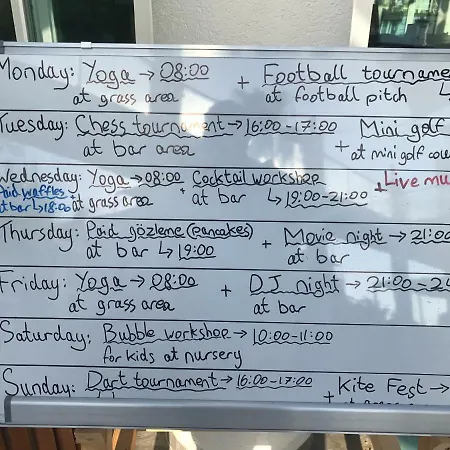 Monday: Yoga → 08:00 + Football tourname
at grass area at football pitch ↳
Tuesday: Chess tournament → 16:00-17:00 Mini golf
at bar area + at mini golf cou
Wednesday: Yoga → 08:00 + Cocktail workshop + Live mu
Paid waffles at bar ↳ 18:00 at grass area at bar ↳ 19:00-21:00
Thursday: Paid gözleme (pancakes) + Movie night → 21:00
at bar ↳ 19:00 at bar
Friday: Yoga → 08:00 + DJ night → 21:00-24
at grass area at bar
Saturday: Bubble workshop → 10:00-11:00
for kids at nursery
Sunday: Dart tournament → 16:00-17:00 + Kite Fest →